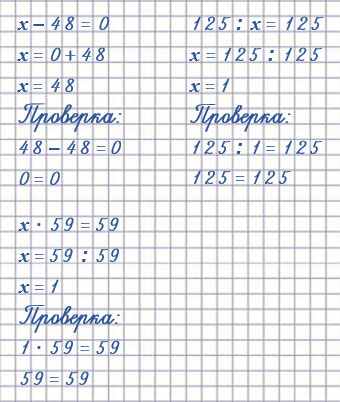 x − 48 = 0
x = 0 + 48
x = 48
Проверка:
48 − 48 = 0
0 = 0
125 : x = 125
x = 125 : 125
x = 1
Проверка:
125 : 1 = 125
125 = 125
x · 59 = 59
x = 59 : 59
x = 1
Проверка:
1 · 59 = 59
59 = 59